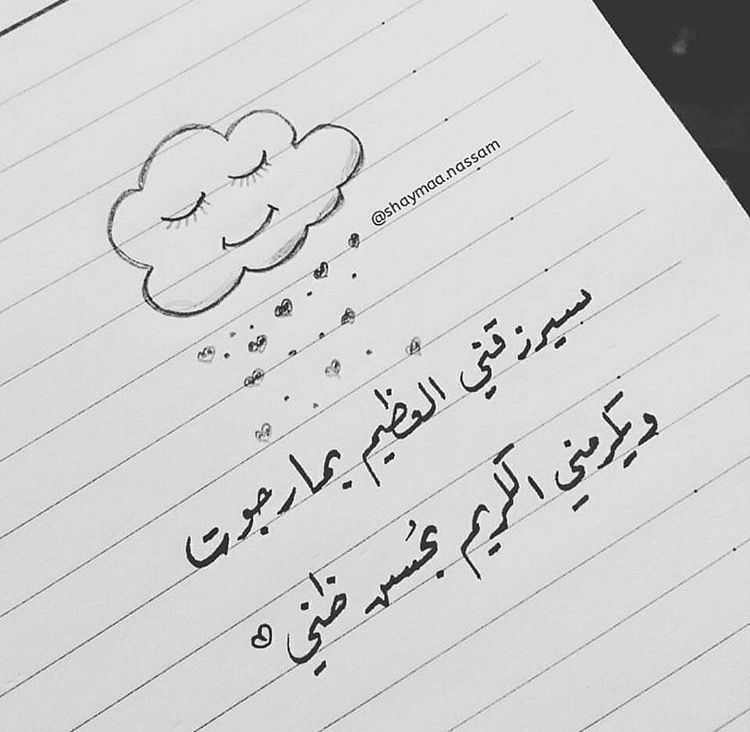 @shaymaa.nassam
سيرزقني العظيم بما رجوت
ويكرمني الكريم بحُسن ظني